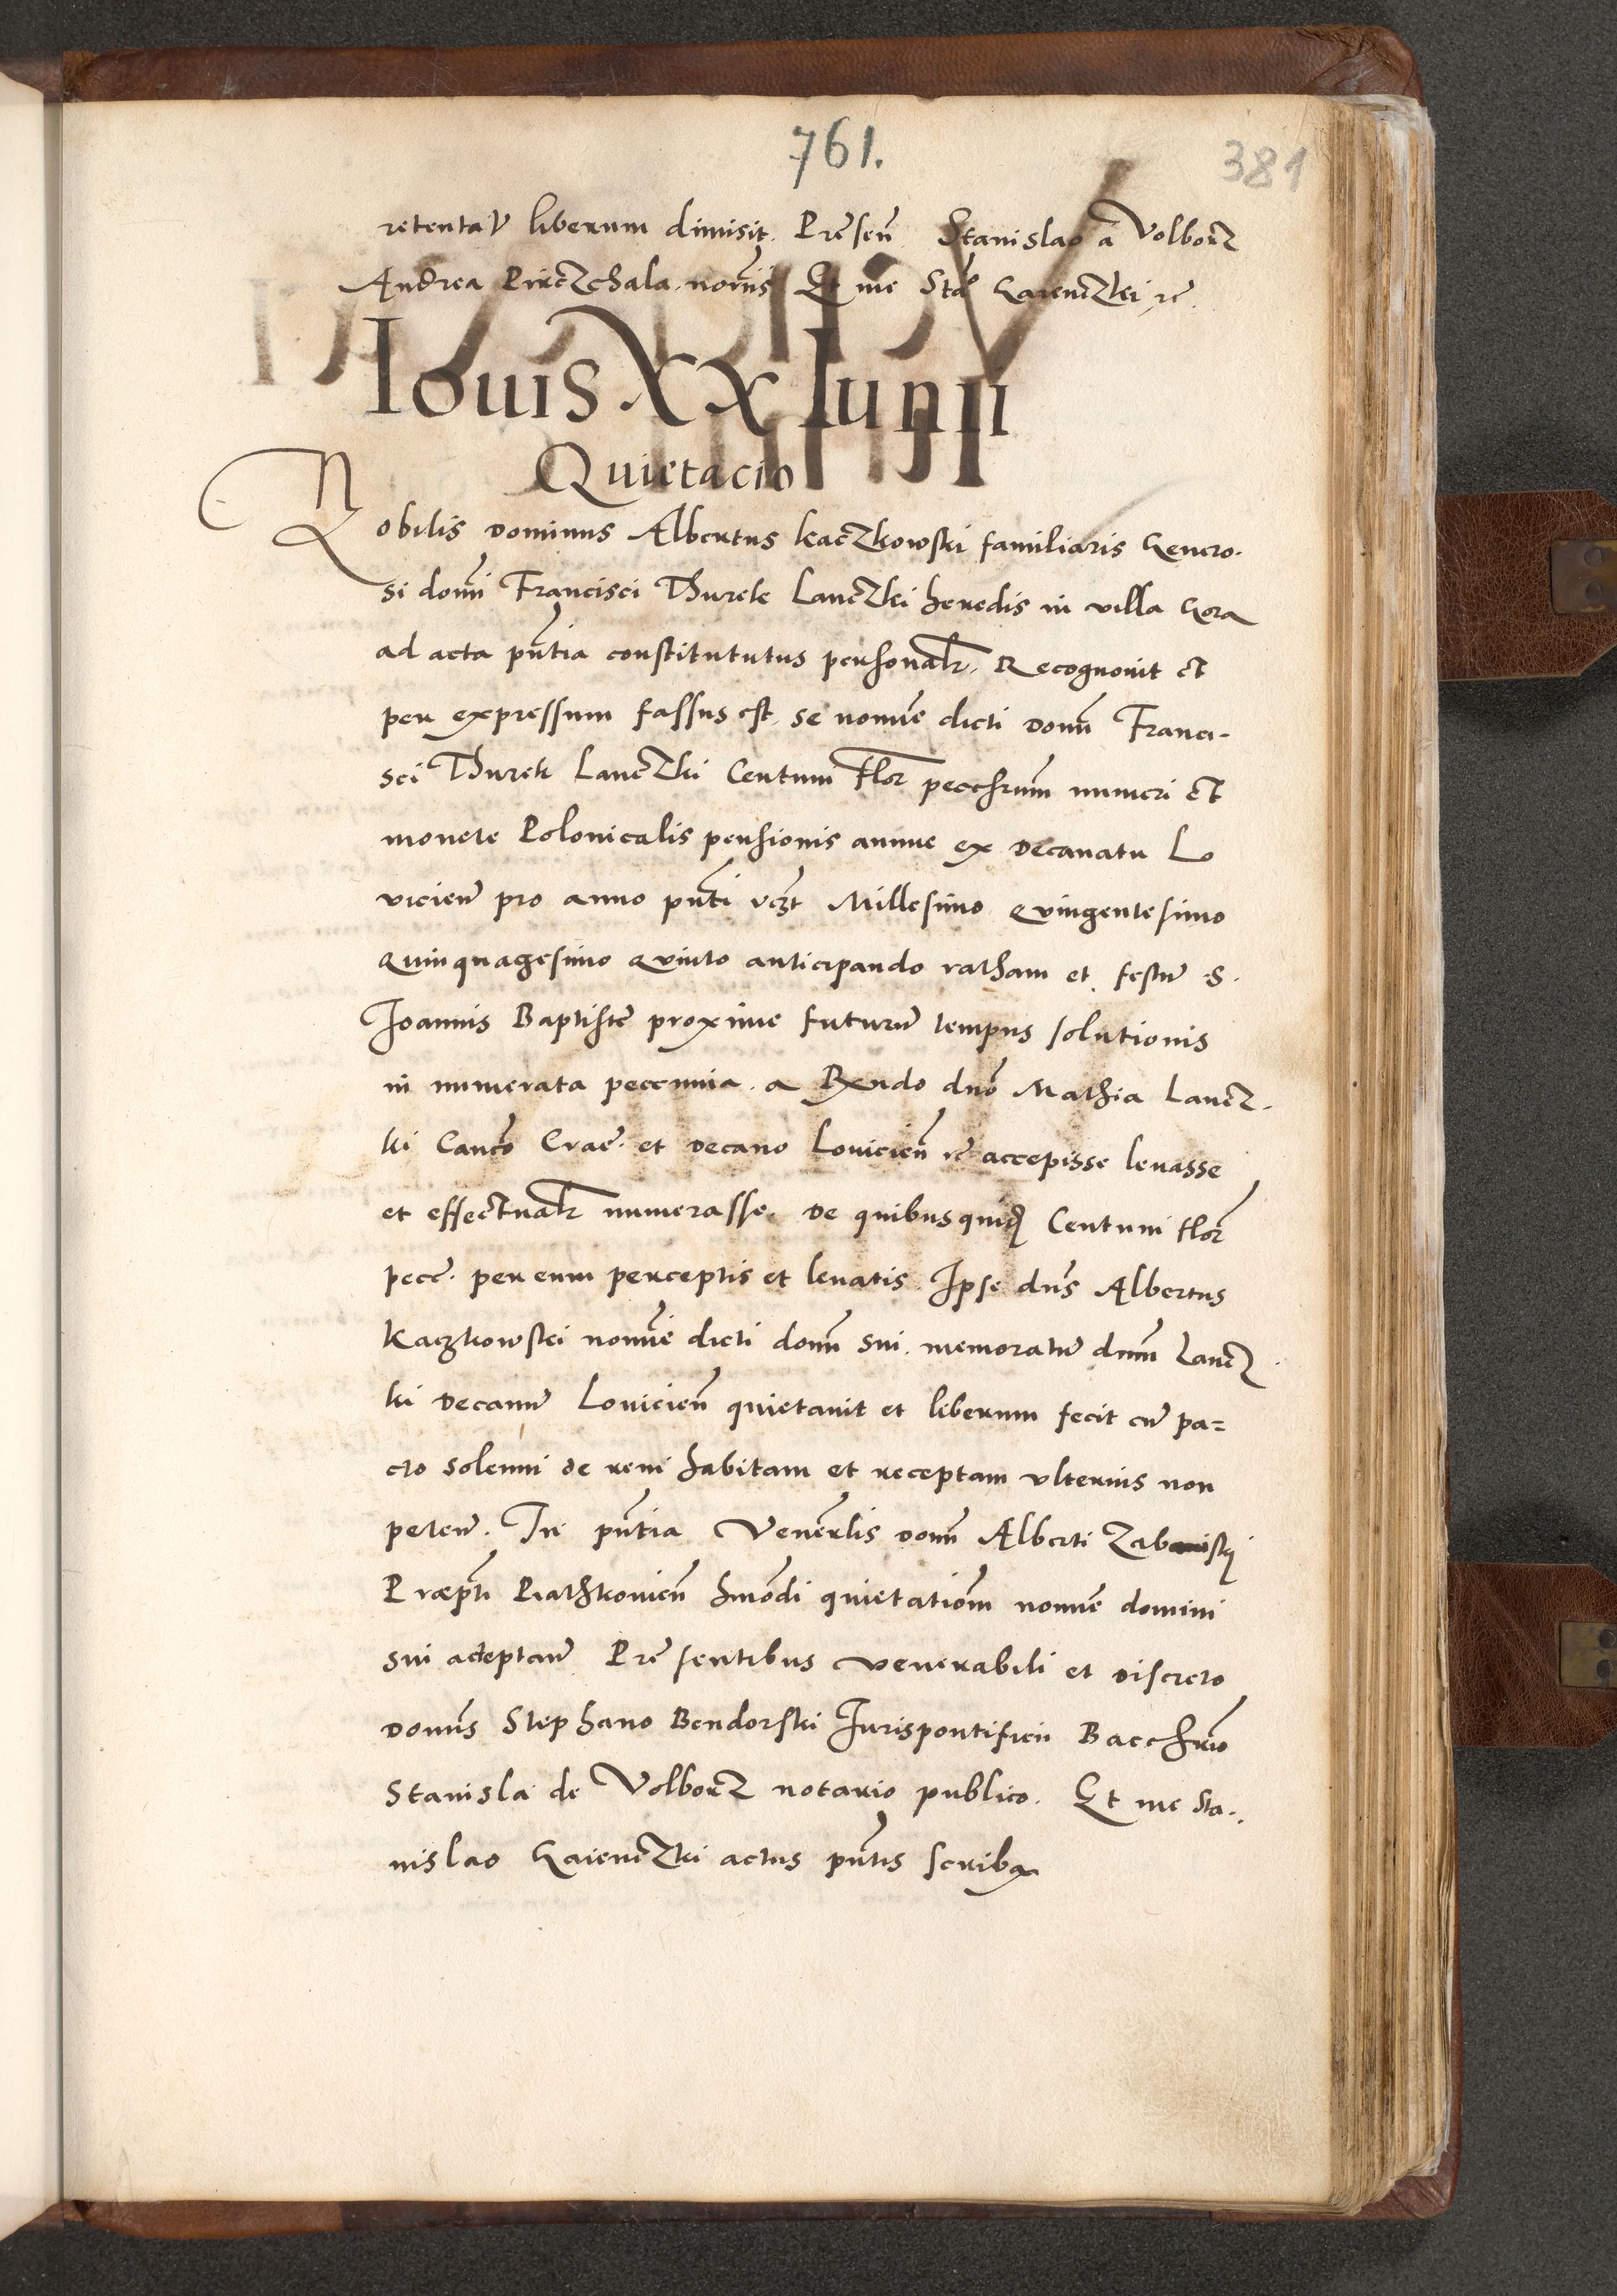 761.
381
retentaꝶ liberum dimisit. Pręsen̄ Stanislao a Volborz
Andrea Pirczchala noriis Et me Stao Gaienczki, rc
Iouis XX Iunii
Quietacio
Nobilis dominus Albertus kaczkowski familiaris Genero-
si domī Francisci Thurek Lanczki heredis in villa Gora
ad acta pn̄tia constitututus personalr. Recognouit et
per expressum fassus est se nomīe dicti domī Franci-
sci Thurek Lanczki Centum flor peccr̄um numeri et
monete Polonicalis pensionis annue ex decanatu Lo
vicien̄ pro anno pn̄ti vczt Millesimo quingentesimo
quinquagesimo quinto anticipando ratham et festū S.
Joannis Baptistę proxime futurū tempus solutionis
in numerata peccunia a Rndo dnō Mathia Lancz-
ki Canco Crac. et decano Lovicien̄ rc accepisse leuasse
et effectualr numerasse. De quibusquidē Centum flor
pecc. per eum perceptis et leuatis. Ipse dn̄s Albertus
kaczkowski nomīe dicti domī sui memoratū dnm̄ Lancz
ki decanū Louicien̄ quietauit et liberum fecit cū pa=
cto solenni de remi habitam et receptam vlterius non
peten̄. In pn̄tia Venerlis domī Alberti
Præpti hmōdi quietationm nomīe domini
sui acceptan̄ Pręsentibus venerabili et discreto
domīs Stephano Bendorski Jurispontificii Bacchrio
Stanislā de Volborz notario publico. Et me Sta.
nislao Gaienczki actus pn̄tis scriba